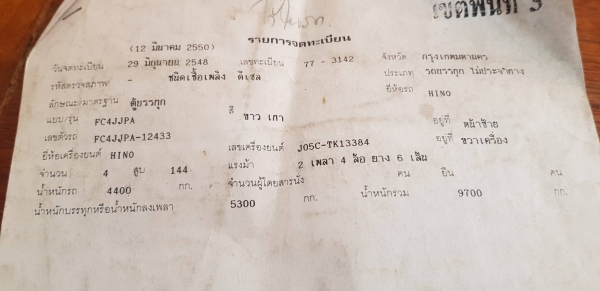 เขตพื้นที่ 3
(12 มีนาคม 2550)
รายการจดทะเบียน
วันจดทะเบียน 29 มิถุนายน 2548 เลขทะเบียน 77 - 3142 จังหวัด กรุงเทพมหานคร
รหัสตรวจสภาพ ชนิดเชื้อเพลิง ดีเซล ประเภท รถบรรทุก ไม่ประจำทาง
ลักษณะ/มาตรฐาน ตู้บรรทุก ยี่ห้อรถ HINO
แบบ/รุ่น FC4JJPA สี ขาว เทา
เลขตัวรถ FC4JJPA-12433 อยู่ที่ หน้าซ้าย
ยี่ห้อเครื่องยนต์ HINO เลขเครื่องยนต์ J05C-TK13384 อยู่ที่ ขวาเครื่อง
จำนวน 4 สูบ 144 แรงม้า 2 เพลา 4 ล้อ ยาง 6 เส้น
น้ำหนักรถ 4400 กก. จำนวนผู้โดยสารนั่ง คน ยืน คน
น้ำหนักบรรทุกหรือน้ำหนักลงเพลา 5300 กก. น้ำหนักรวม 9700 กก.